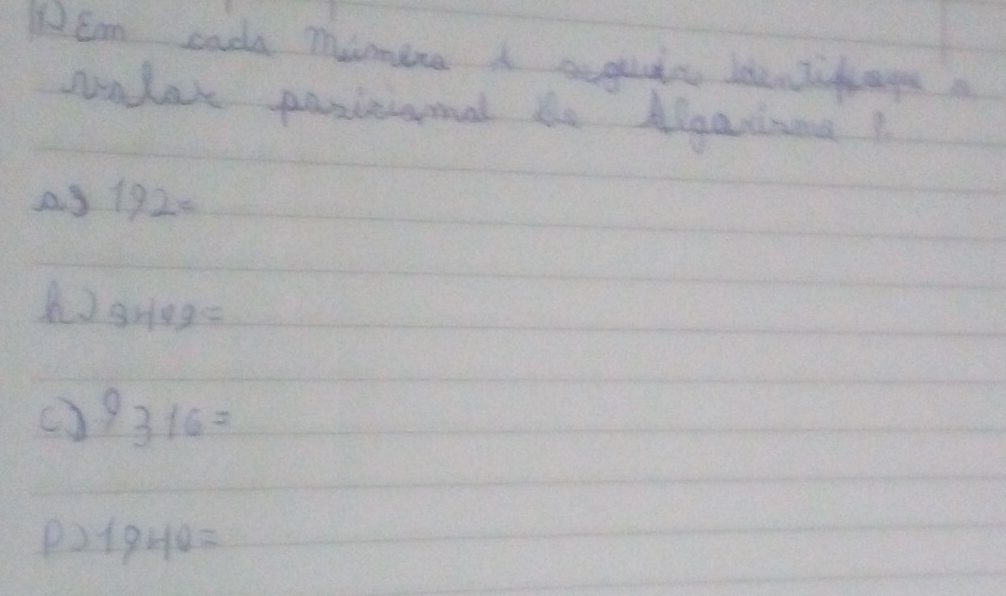 1) Em cada Número A seguir Identifique o
valor posicional do Algarismo 9.
a) 192=
b) 3499=
c) 9316=
D) 1940=